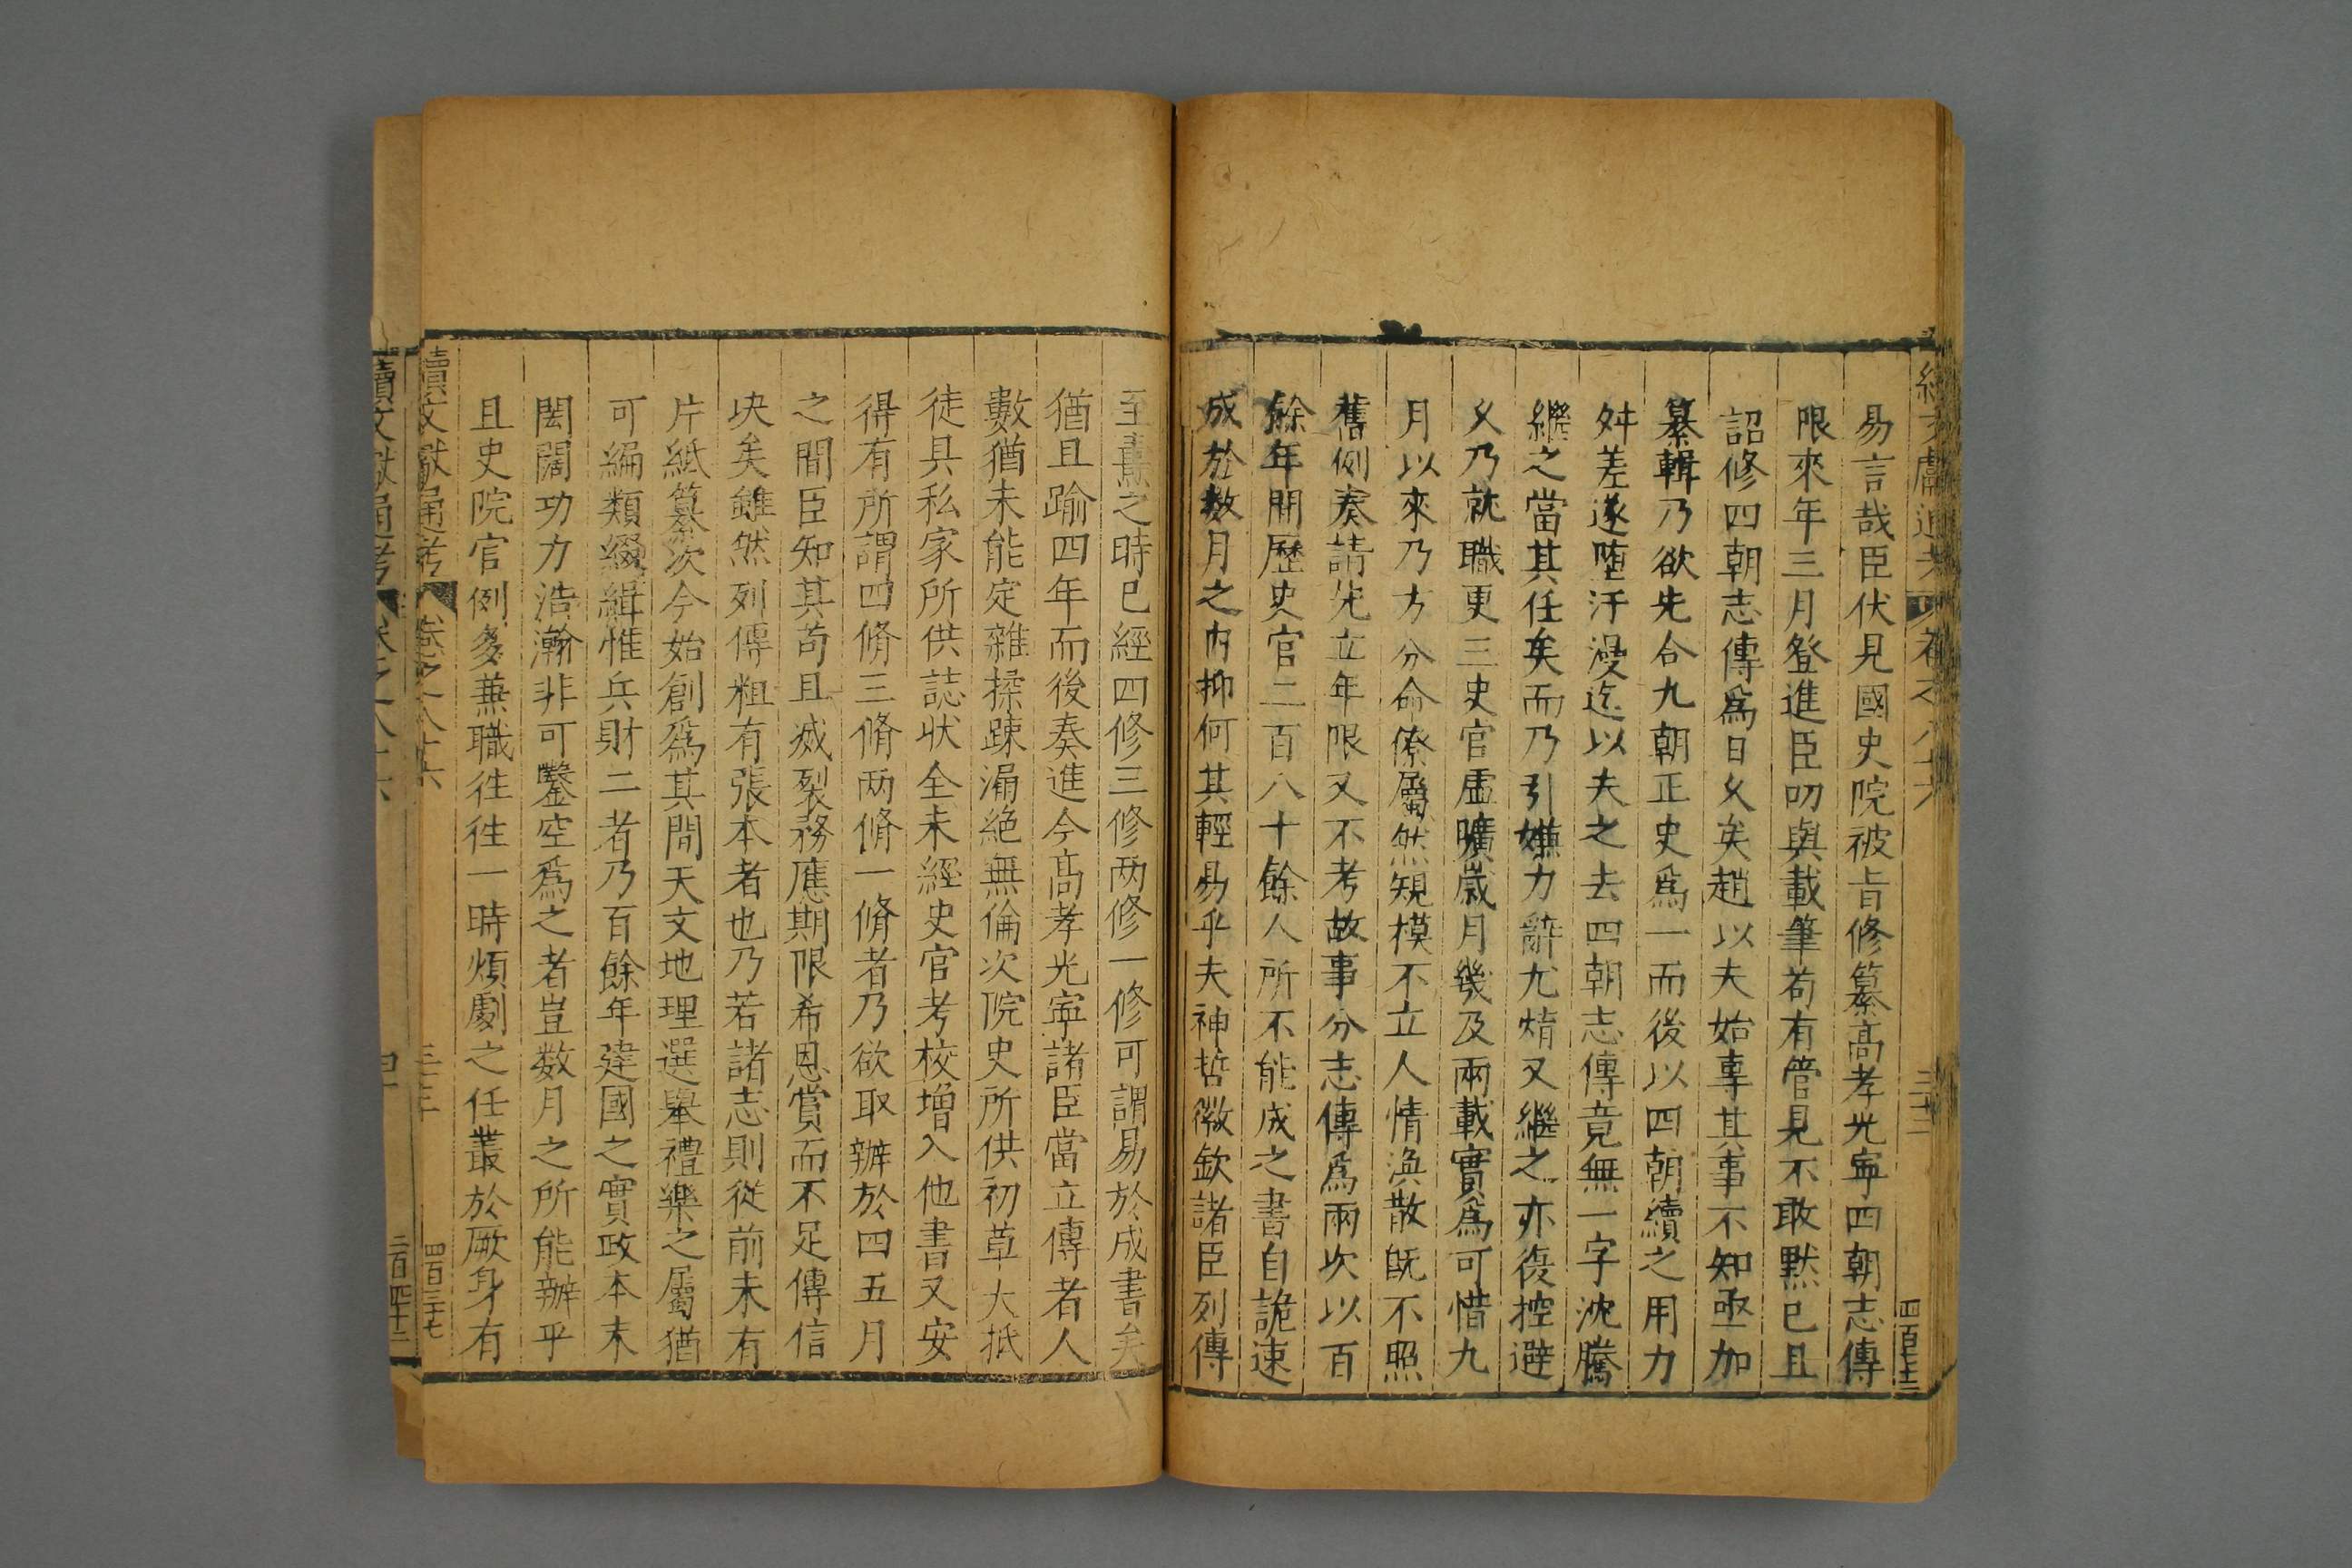 易言哉臣伏見國史院被旨修纂高孝光寧四朝志傳
限來年三月登進臣叨與載筆苟有管見不敢默已且
詔修四朝志傳爲日久矣趙以夫始專其事不知亟加
纂輯乃欲先合九朝正史爲一而後以四朝續之用力
舛差遂墮汗漫迄以夫之去四朝志傳竟無一字沈騰
繼之當其任矣而乃引嫌力辭尤焴又繼之亦復控避
久乃就職更三史官虛曠歲月幾及兩載實爲可惜九
月以來乃方分命僚屬然規模不立人情渙散旣不照
舊例奏請先立年限又不考故事分志傳爲兩次以百
餘年間歷史官二百八十餘人所不能成之書自詭速
成於数月之内抑何其輕易乎夫神哲徽欽諸臣列傳
至燾之時已經四修三修两修一修可謂易於成書矣
猶且踰四年而後奏進今高孝光寧諸臣當立傳者人
數猶未能定雜揉踈漏絕無倫次院史所供初草大抵
徒具私家所供誌狀全未經史官考校增入他書又安
得有所謂四脩三脩两脩一脩者乃欲取辦於四五月
之間臣知其苟且滅裂務應期限希恩賞而不足傳信
决矣雖然列傳粗有張本者也乃若諸志則從前未有
片紙纂次今始創爲其間天文地理選舉禮樂之屬猶
可編類綴緝惟兵財二者乃百餘年建國之實政本末
閎闊功力浩瀚非可鑿空爲之者豈数月之所能辦乎
且史院官例多兼職往往一時煩劇之任叢於厥身有
續文獻通考 卷之八十六
三十三
四百三十七